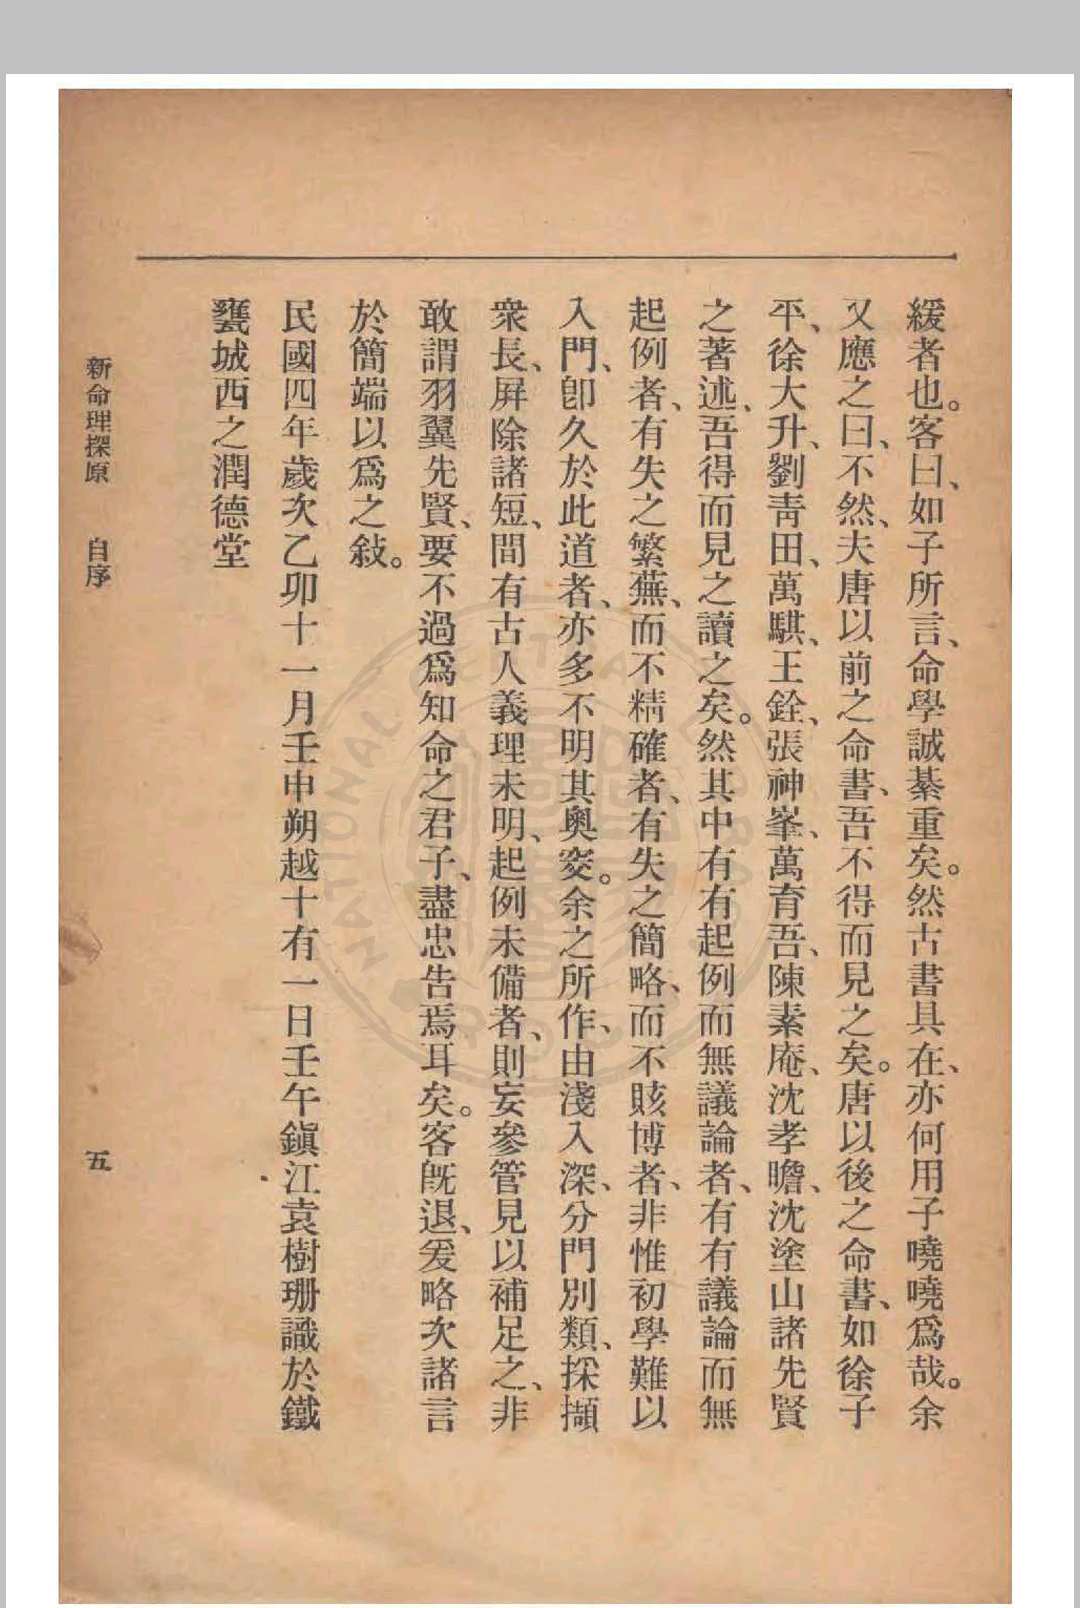 緩者也。客曰、如子所言、命學誠綦重矣。然古書具在、亦何用子嘵嘵爲哉。余
又應之曰、不然、夫唐以前之命書、吾不得而見之矣。唐以後之命書、如徐子
平、徐大升、劉靑田、萬騏、王銓、張神峯、萬育吾、陳素庵、沈孝瞻、沈塗山諸先賢
之著述、吾得而見之讀之矣。然其中有有起例而無議論者、有有議論而無
起例者、有失之繁蕪、而不精確者、有失之簡略、而不賅博者、非惟初學難以
入門、卽久於此道者、亦多不明其奧窔。余之所作、由淺入深、分門別類、採擷
衆長、屛除諸短、間有古人義理未明、起例未備者、則妄參管見以補足之、非
敢謂羽翼先賢、要不過爲知命之君子、盡忠告焉耳矣。客旣退、爰略次諸言
於簡端以爲之敍。
民國四年歲次乙卯十一月壬申朔越十有一日壬午鎭江袁樹珊識於鐵
甕城西之潤德堂
新命理探原 自序 五
NATIONAL CENTRAL LIBRARY R.O.C.